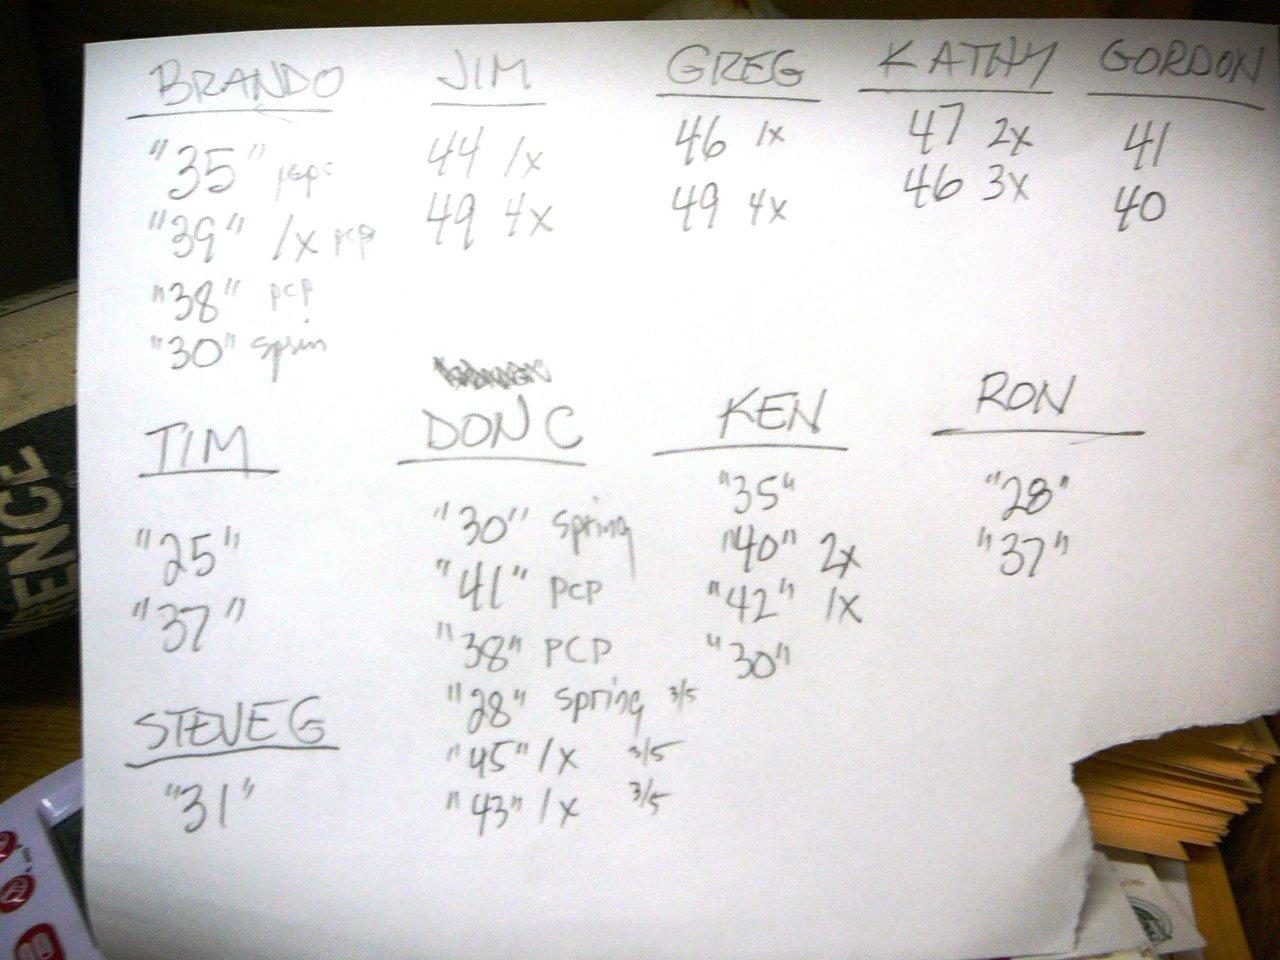 BRANDO
"35"
"39" 1x pcp
"38" pcp
"30" Sprin
JIM
44 1x
49 4x
GREG
46 1x
49 4x
KATHY
47 2x
46 3x
GORDON
41
40
TIM
"25"
"37"
DON C
"30" Spring
"41" PCP
"38" PCP
"28" Spring 3/5
"45" 1x 3/5
"43" 1x 3/5
KEN
"35"
"40" 2x
"42" 1x
"30"
RON
"28"
"37"
STEVE G
"31"
ENCE